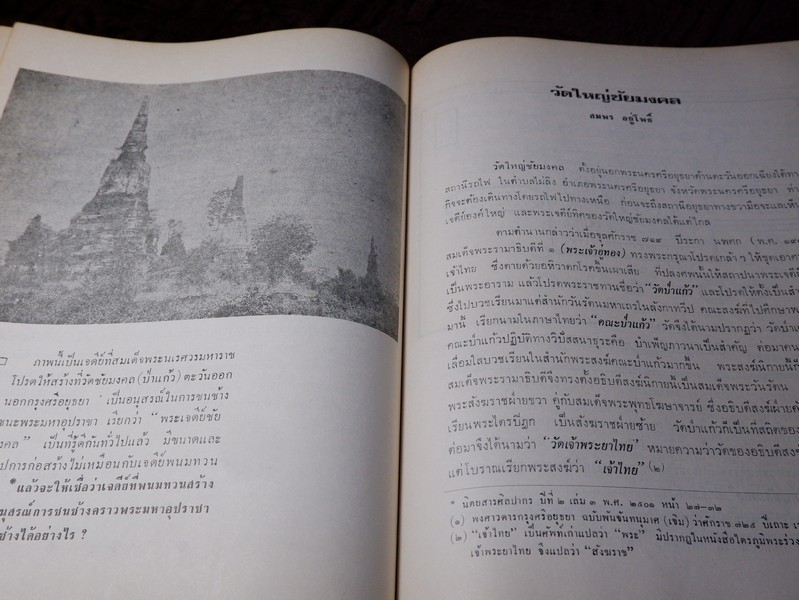 ภาพนี้เป็นเจดีย์ที่สมเด็จพระนเรศวรมหาราช
โปรดให้สร้างที่วัดชัยมงคล (ป่าแก้ว) ตะวันออก
นอกกรุงศรีอยุธยา เป็นอนุสรณ์ในการชนช้าง
ชนะพระมหาอุปราชา เรียกว่า "พระเจดีย์ชัย
งคล" เป็นที่รู้ดีกันทั่วไปแล้ว มีขนาดและ
ปการก่อสร้างไม่เหมือนกับเจดีย์พนมทวน
*แล้วจะให้เชื่อว่าเจดีย์ที่พนมทวนสร้าง
นุสรณ์การชนช้างคราวพระมหาอุปราชา
ช้างได้อย่างไร ?
วัดใหญ่ชัยมงคล
สมพร อยู่โพธิ์
วัดใหญ่ชัยมงคล ตั้งอยู่นอกพระนครศรีอยุธยาด้านตะวันออกเฉียงใต้ทา
สถานีรถไฟ ในตำบลไผ่ลิง อำเภอพระนครศรีอยุธยา จังหวัดพระนครศรีอยุธยา ท่า
กิจจะต้องเดินทางโดยรถไฟไปทางเหนือ ก่อนจะถึงสถานีอยุธยาทางขวามือจะแลเห็
เจดีย์องค์ใหญ่ และพระเจดีย์ทิศของวัดใหญ่ชัยมงคลได้แต่ไกล
ตามตำนานกล่าวว่าเมื่อจุลศักราช ๗๑๙ ปีระกา นพศก (พ.ศ. ๑๙
สมเด็จพระรามาธิบดีที่ ๑ (พระเจ้าอู่ทอง) ทรงพระกรุณาโปรดเกล้า ๆ ให้ขุดเอาศ
เจ้าไทย ซึ่งตายด้วยอหิวาตกโรคขึ้นเผาเสีย ที่ปลงศพนั้นให้สถาปนาพระเจดีย์
เป็นพระอาราม แล้วโปรดพระราชทานชื่อว่า "วัดป่าแก้ว" และโปรดให้ตั้งเป็นสำ
ซึ่งไปบวชเรียนมาแต่สำนักวันรัตนมหาเถรในลังกาทวีป คณะสงฆ์ที่ไปศึกษาพ
มานี้ เรียกนามในภาษาไทยว่า "คณะป่าแก้ว" วัดจึงได้นามปรากฏว่า วัดป่าแ
คณะป่าแก้วปฏิบัติทางวิปัสสนาธุระคือ บำเพ็ญภาวนาเป็นสำคัญ ต่อมาคน
เลื่อมใสบวชเรียนในสำนักพระสงฆ์คณะป่าแก้วมากขึ้น พระสงฆ์นิกายนี้ก็
สมเด็จพระรามาธิบดีจึงทรงตั้งอธิบดีสงฆ์นิกายนี้เป็นสมเด็จพระวันรัตน
พระสังฆราชฝ่ายขวา คู่กับสมเด็จพระพุทธโฆษาจารย์ ซึ่งอธิบดีสงฆ์ฝ่ายค
เรียนพระไตรปิฎก เป็นสังฆราชฝ่ายซ้าย วัดป่าแก้วก็เป็นที่สถิตของ
ต่อมาจึงได้นามว่า "วัดเจ้าพระยาไทย" หมายความว่าวัดของอธิบดีสงฆ์
แต่โบราณเรียกพระสงฆ์ว่า "เจ้าไทย" (๒)
* นิตยสารศิลปากร ปีที่ ๒ เล่ม ๓ พ.ศ. ๒๕๐๑ หน้า ๒๗-๓๒
(๑) พงศาวดารกรุงศรีอยุธยา ฉบับพันจันทนุมาศ (เจิม) ว่าศักราช ๗๒๕ ปีเถาะ เ
(๒) "เจ้าไทย" เป็นศัพท์เก่าแปลว่า "พระ" มีปรากฏในหนังสือไตรภูมิพระร่วง
เจ้าพระยาไทย จึงแปลว่า "สังฆราช"